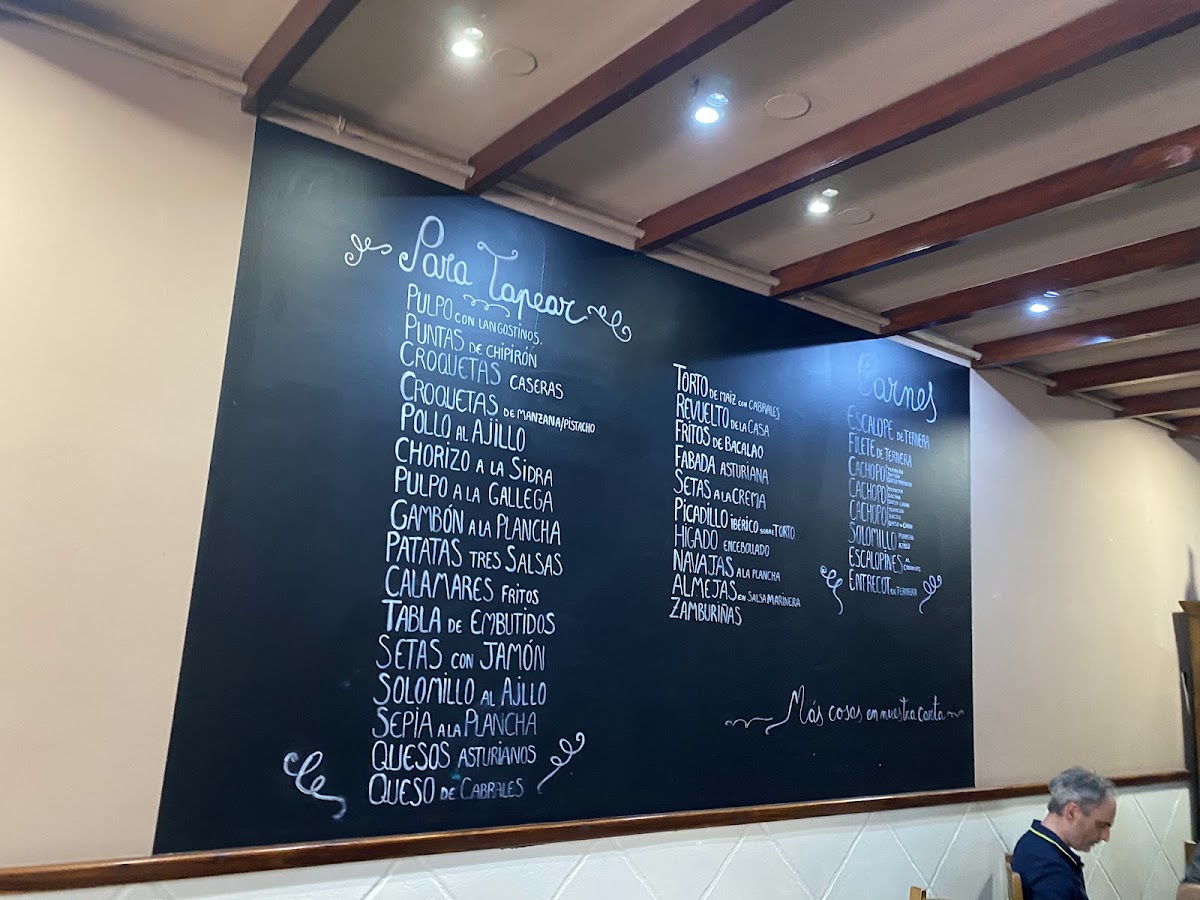 Para Tapear
PULPO CON LANGOSTINOS.
PUNTAS DE CHIPIRÓN
CROQUETAS CASERAS
CROQUETAS DE MANZANA/PISTACHO
POLLO AL AJILLO
CHORIZO A LA SIDRA
PULPO A LA GALLEGA
GAMBÓN A LA PLANCHA
PATATAS TRES SALSAS
CALAMARES FRITOS
TABLA DE EMBUTIDOS
SETAS CON JAMÓN
SOLOMILLO AL AJILLO
SEPIA A LA PLANCHA
QUESOS ASTURIANOS
QUESO DE CABRALES
TORTO DE MAÍZ CON CABRALES
REVUELTO DE LA CASA
FRITOS DE BACALAO
FABADA ASTURIANA
SETAS A LA CREMA
PICADILLO IBÉRICO SOBRE TORTO
HIGADO ENCEBOLLADO
NAVAJAS A LA PLANCHA
ALMEJAS EN SALSA MARINERA
ZAMBURIÑAS
Carnes
ESCALOPE DE TERNERA
FILETE DE TERNERA
CACHOPO
CACHOPO
CACHOPO
SOLOMILLO
ESCALOPINES
ENTRECOT DE TERNERA
Más cosas en nuestra carta